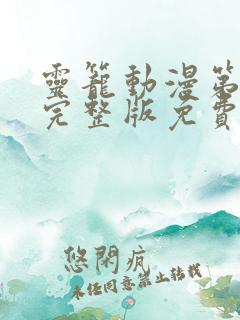 靈籠動漫第
完整版免費
悠閑疯
未經同意禁止轉載